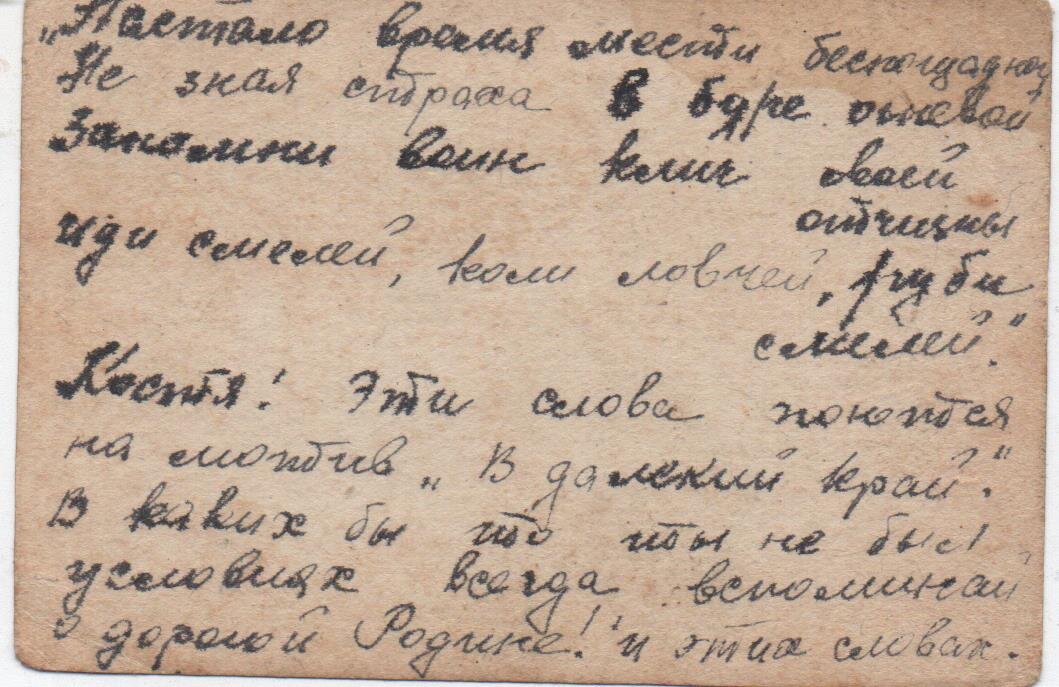 „Настало время мести беспощадной
Не зная страха в буре огневой
Запомни воин клич своей
отчизны
иди смелей, коли ловчей, руби
смелей."
Костя! Эти слова поются
на мотив „В далекий край."
В каких бы то ты не был
условиях всегда вспоминай
о дорогой Родине! и этих словах.